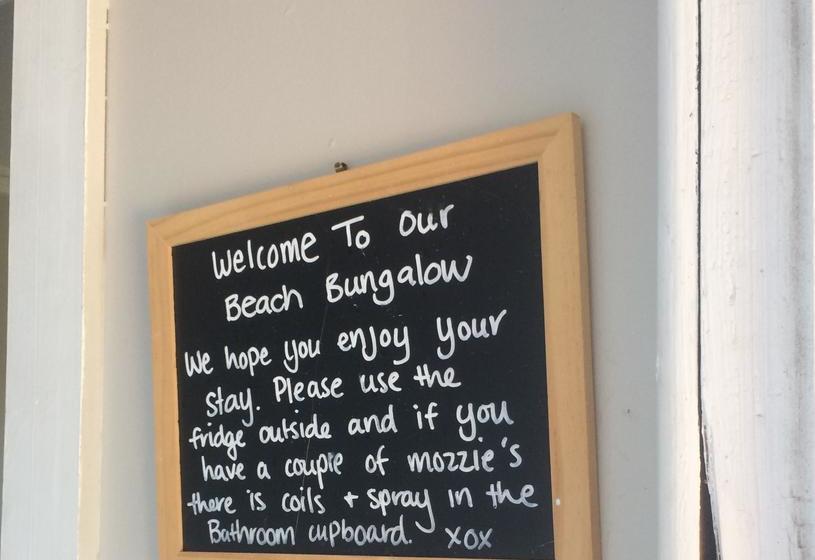 Welcome To our
Beach Bungalow
We hope you enjoy your
stay. Please use the
fridge outside and if you
have a couple of mozzie's
there is coils + spray in the
Bathroom cupboard. xox